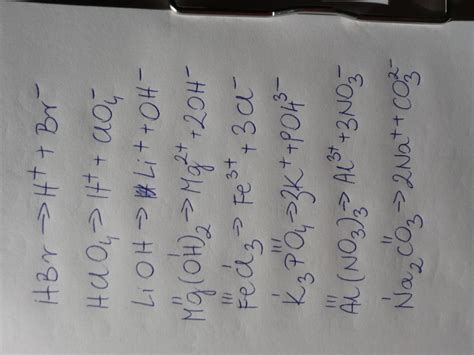 HBr → H⁺ + Br⁻
HClO₄ → H⁺ + ClO₄⁻
LiOH → Li⁺ + OH⁻
Mg(OH)₂ → Mg²⁺ + 2OH⁻
FeCl₃ → Fe³⁺ + 3Cl⁻
K₃PO₄ → 3K⁺ + POH³⁻
Al(NO₃)₃ → Al³⁺ + 3NO₃⁻
Na₂CO₃ → 2Na⁺ + CO₃²⁻